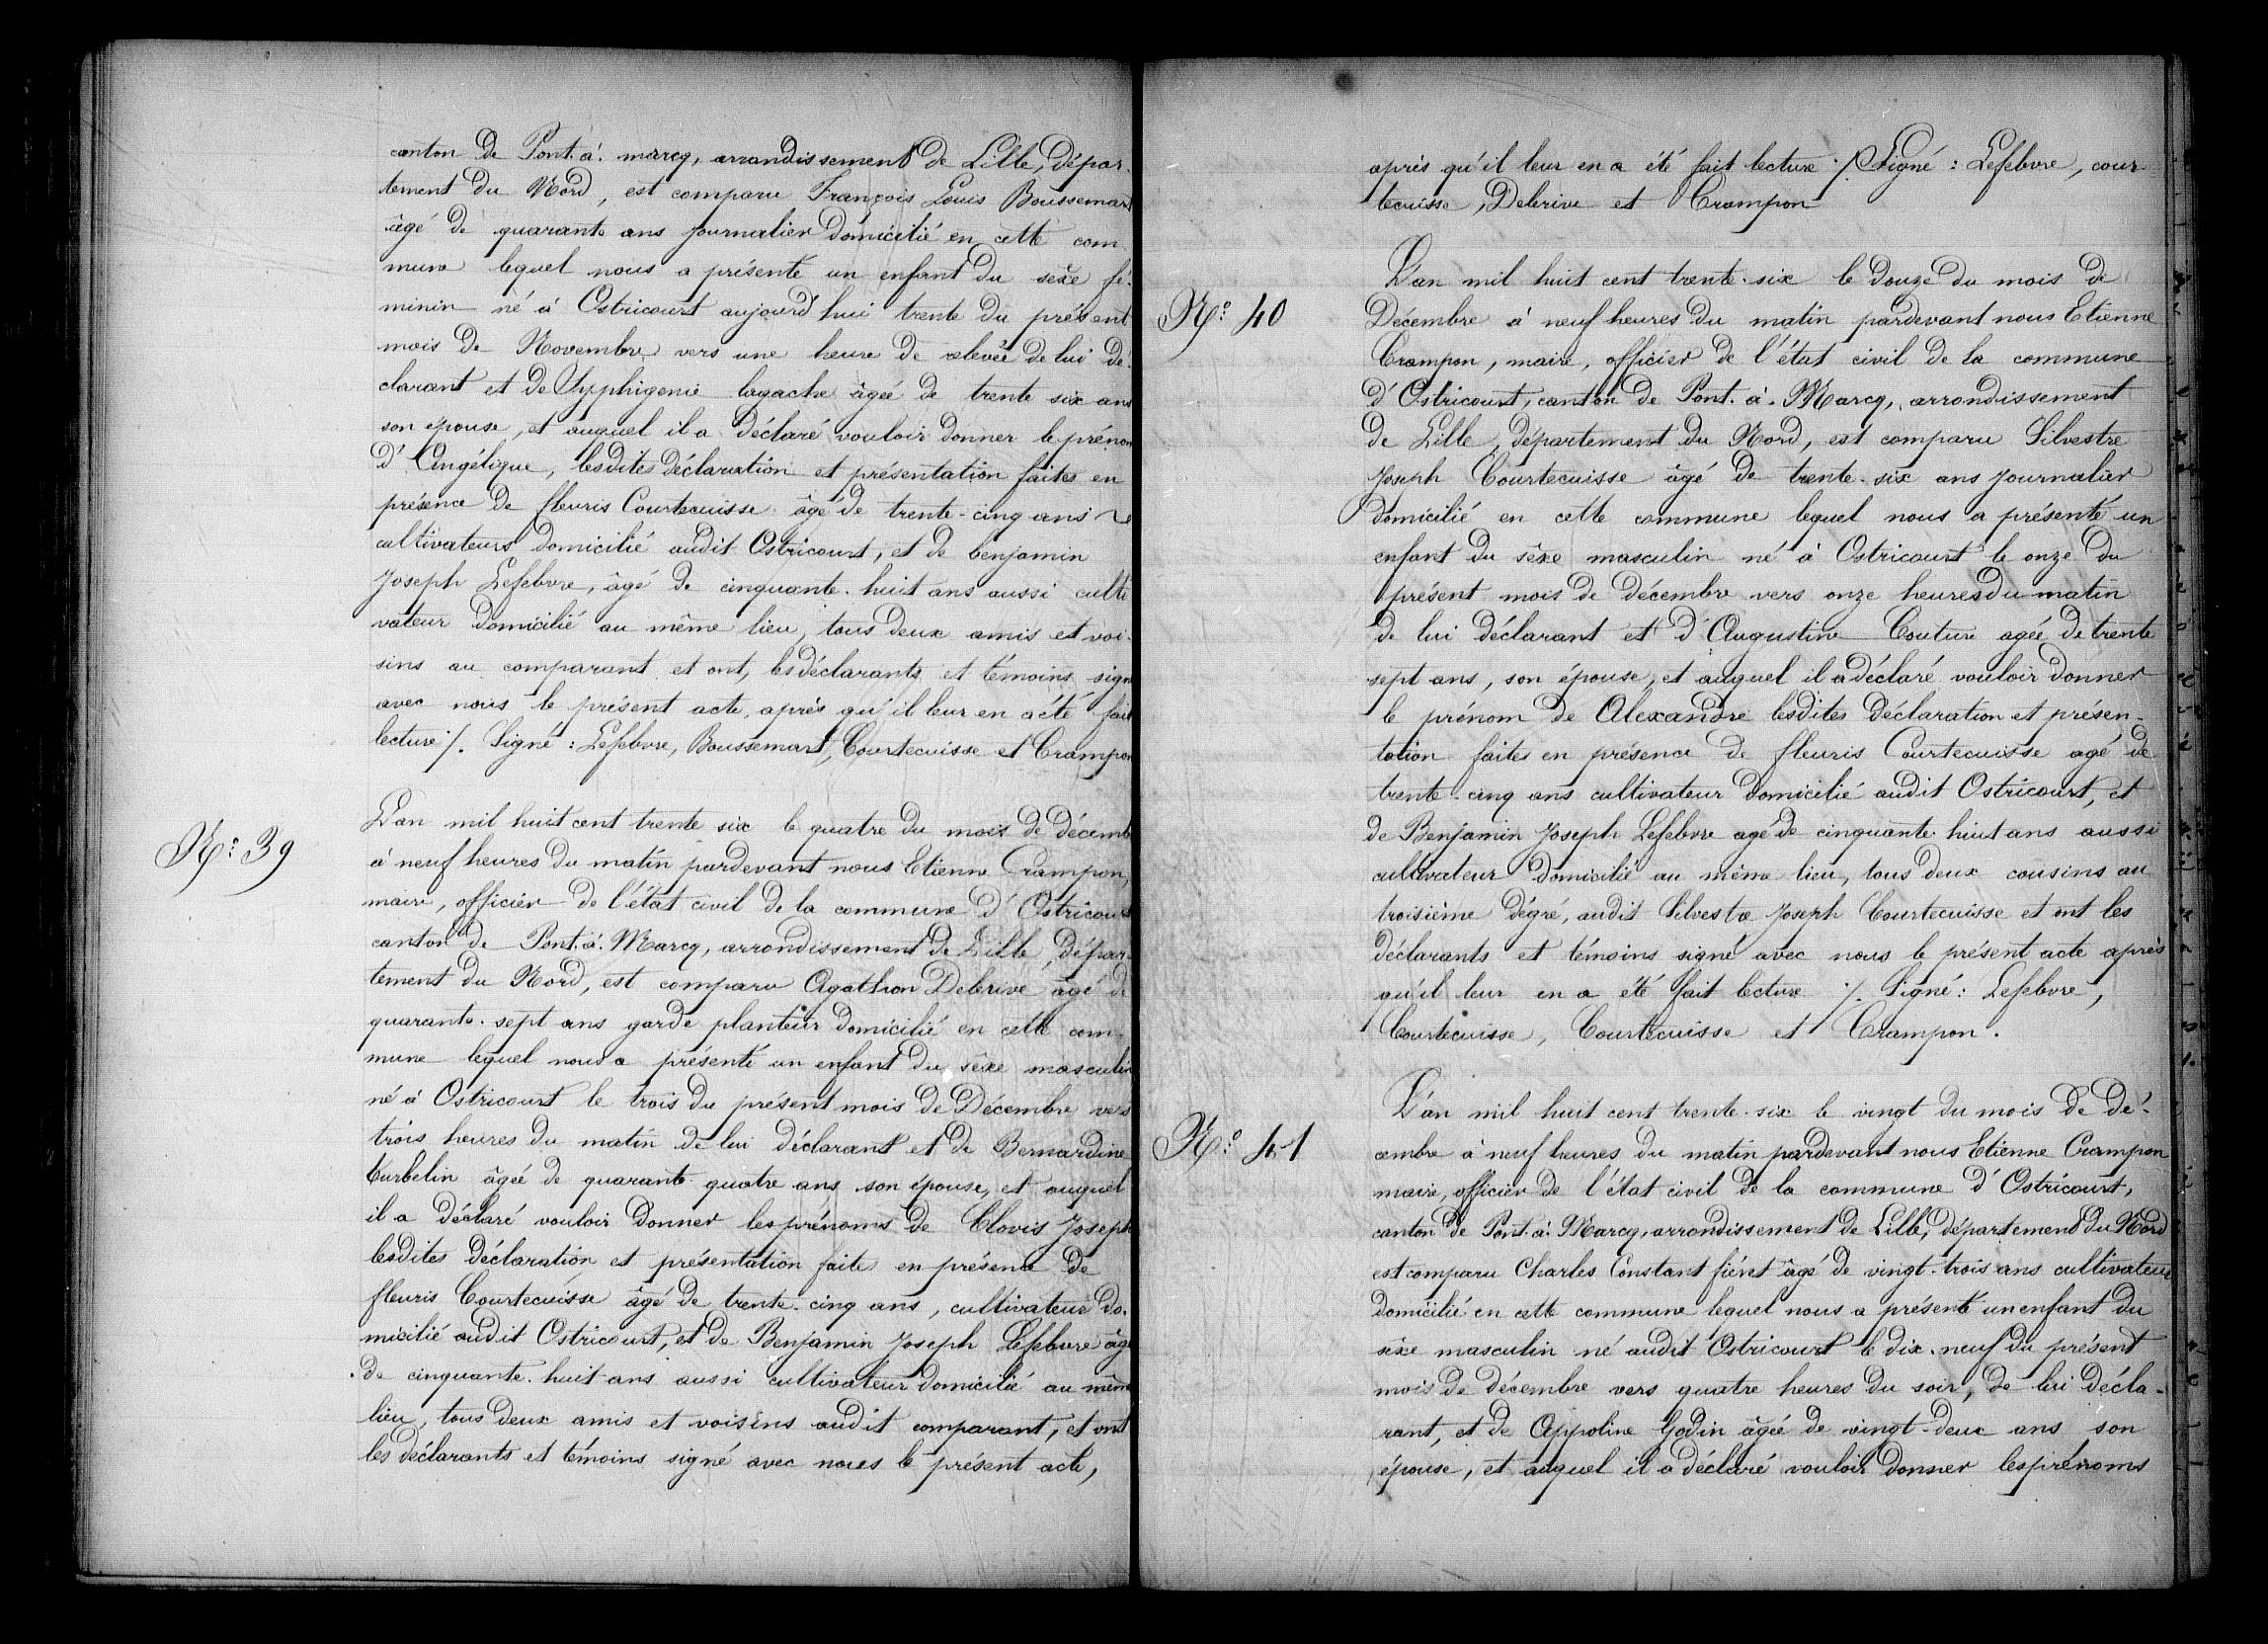 canton de Pont. à. marcq, arrondissement de Lille, dépar-
tement du Nord, est comparu François Louis Boussemart
âgé de quarante ans journalier domicilié en cette com
mune lequel nous a présenté un enfant du sexe fé-
minin né à Ostricourt aujourd'hui trente du présent
mois de Novembre vers une heure de relevée de lui dé-
clarant et de lagache âgée de trente six ans
son épouse, et auquel il a déclaré vouloir donner le prénom
d'Angélique, lesdites déclaration et présentation faites en
présence de fleuris Courtecuisse âgé de trente-cinq ans
cultivateurs domicilié audit Ostricourt, et de benjamin
Joseph Lefebvre, âgé de cinquante-huit ans aussi culti
vateur domicilié au même lieu, tous deux amis et voi-
sins au comparant et ont, les déclarants et témoins signé
avec nous le présent acte, après qu'il leur en a été fait
lecture ./. Signé : Lefebvre, Boussemart, Courtecuisse et Crampon
N° 39
L'an mil huit cent trente six le quatre du mois de décembre
à neuf heures du matin pardevant nous Etienne Crampon,
maire, officier de l'état civil de la commune d'Ostricourt
canton de Pont. à. Marcq, arrondissement de Lille, dépar-
tement du Nord, est comparu Agathon Deberive âgé de
quarante-sept ans garde planteur domicilié en cette com-
mune lequel nous a présenté un enfant du sèxe masculin
né à Ostricourt le trois du présent mois de Décembre vers
trois heures du matin de lui déclarant et de Bernardine
turbelin âgée de quarante-quatre ans son épouse, et auquel
il a déclaré vouloir donner les prénoms de Clovis Joseph
lesdites déclaration et présentation faites en présence de
fleuris Courtecuisse âgé de trente-cinq ans, cultivateur do-
micilié audit Ostricourt, et de Benjamin Joseph Lefebvre âgé
de cinquante-huit ans aussi cultivateur domicilié au même
lieu, tous deux amis et voisins audit comparant, et ont
les déclarants et témoins signé avec nous le présent acte,
après qu'il leur en a été fait lecture ./. Signé : Lefebvre, cour-
tecuisse, Deberive et Crampon
N° 40
L'an mil huit cent trente-six le douze du mois de
Décembre à neuf heures du matin pardevant nous Etienne
Crampon, maire, officier de l'état civil de la commune
d'Ostricourt, canton de Pont. à. Marcq, arrondissement
de Lille, département du Nord, est comparu Silvestre
Joseph Courtecuisse âgé de trente-six ans journalier
domicilié en cette commune lequel nous a présenté un
enfant du sèxe masculin né à Ostricourt le onze du
présent mois de décembre vers onze heures du matin
de lui déclarant et d'Augustine Couture agée de trente
sept ans, son épouse, et auquel il a déclaré vouloir donner
le prénom de Alexandre lesdites déclaration et présen-
tation faites en présence de fleuris Courtecuisse agé de
trente-cinq ans cultivateur domicilié audit Ostricourt, et
de Benjamin Joseph Lefebvre agé de cinquante-huit ans aussi
cultivateur domicilié au même lieu, tous deux cousins au
troisième dégré, audit Silvestre Joseph Courtecuisse et ont les
déclarants et témoins signé avec nous le présent acte après
qu'il leur en a été fait lecture ./. Signé : Lefebvre,
Courtecuisse, Courtecuisse et Crampon.
N° 41
L'an mil huit cent trente-six le vingt du mois de dé-
cembre à neuf heures du matin pardevant nous Etienne Crampon
maire, officier de l'état civil de la commune d'Ostricourt,
canton de Pont. à. Marcq, arrondissement de Lille, département du Nord
est comparu Charles Constant fiévet âgé de vingt-trois ans cultivateur
domicilié en cette commune lequel nous a présenté un enfant du
sèxe masculin né audit Ostricourt le dix-neuf du présent
mois de décembre vers quatre heures du soir, de lui décla-
rant, et de Appoline Godin âgée de vingt-deux ans son
épouse, et auquel il a déclaré vouloir donner les prénoms